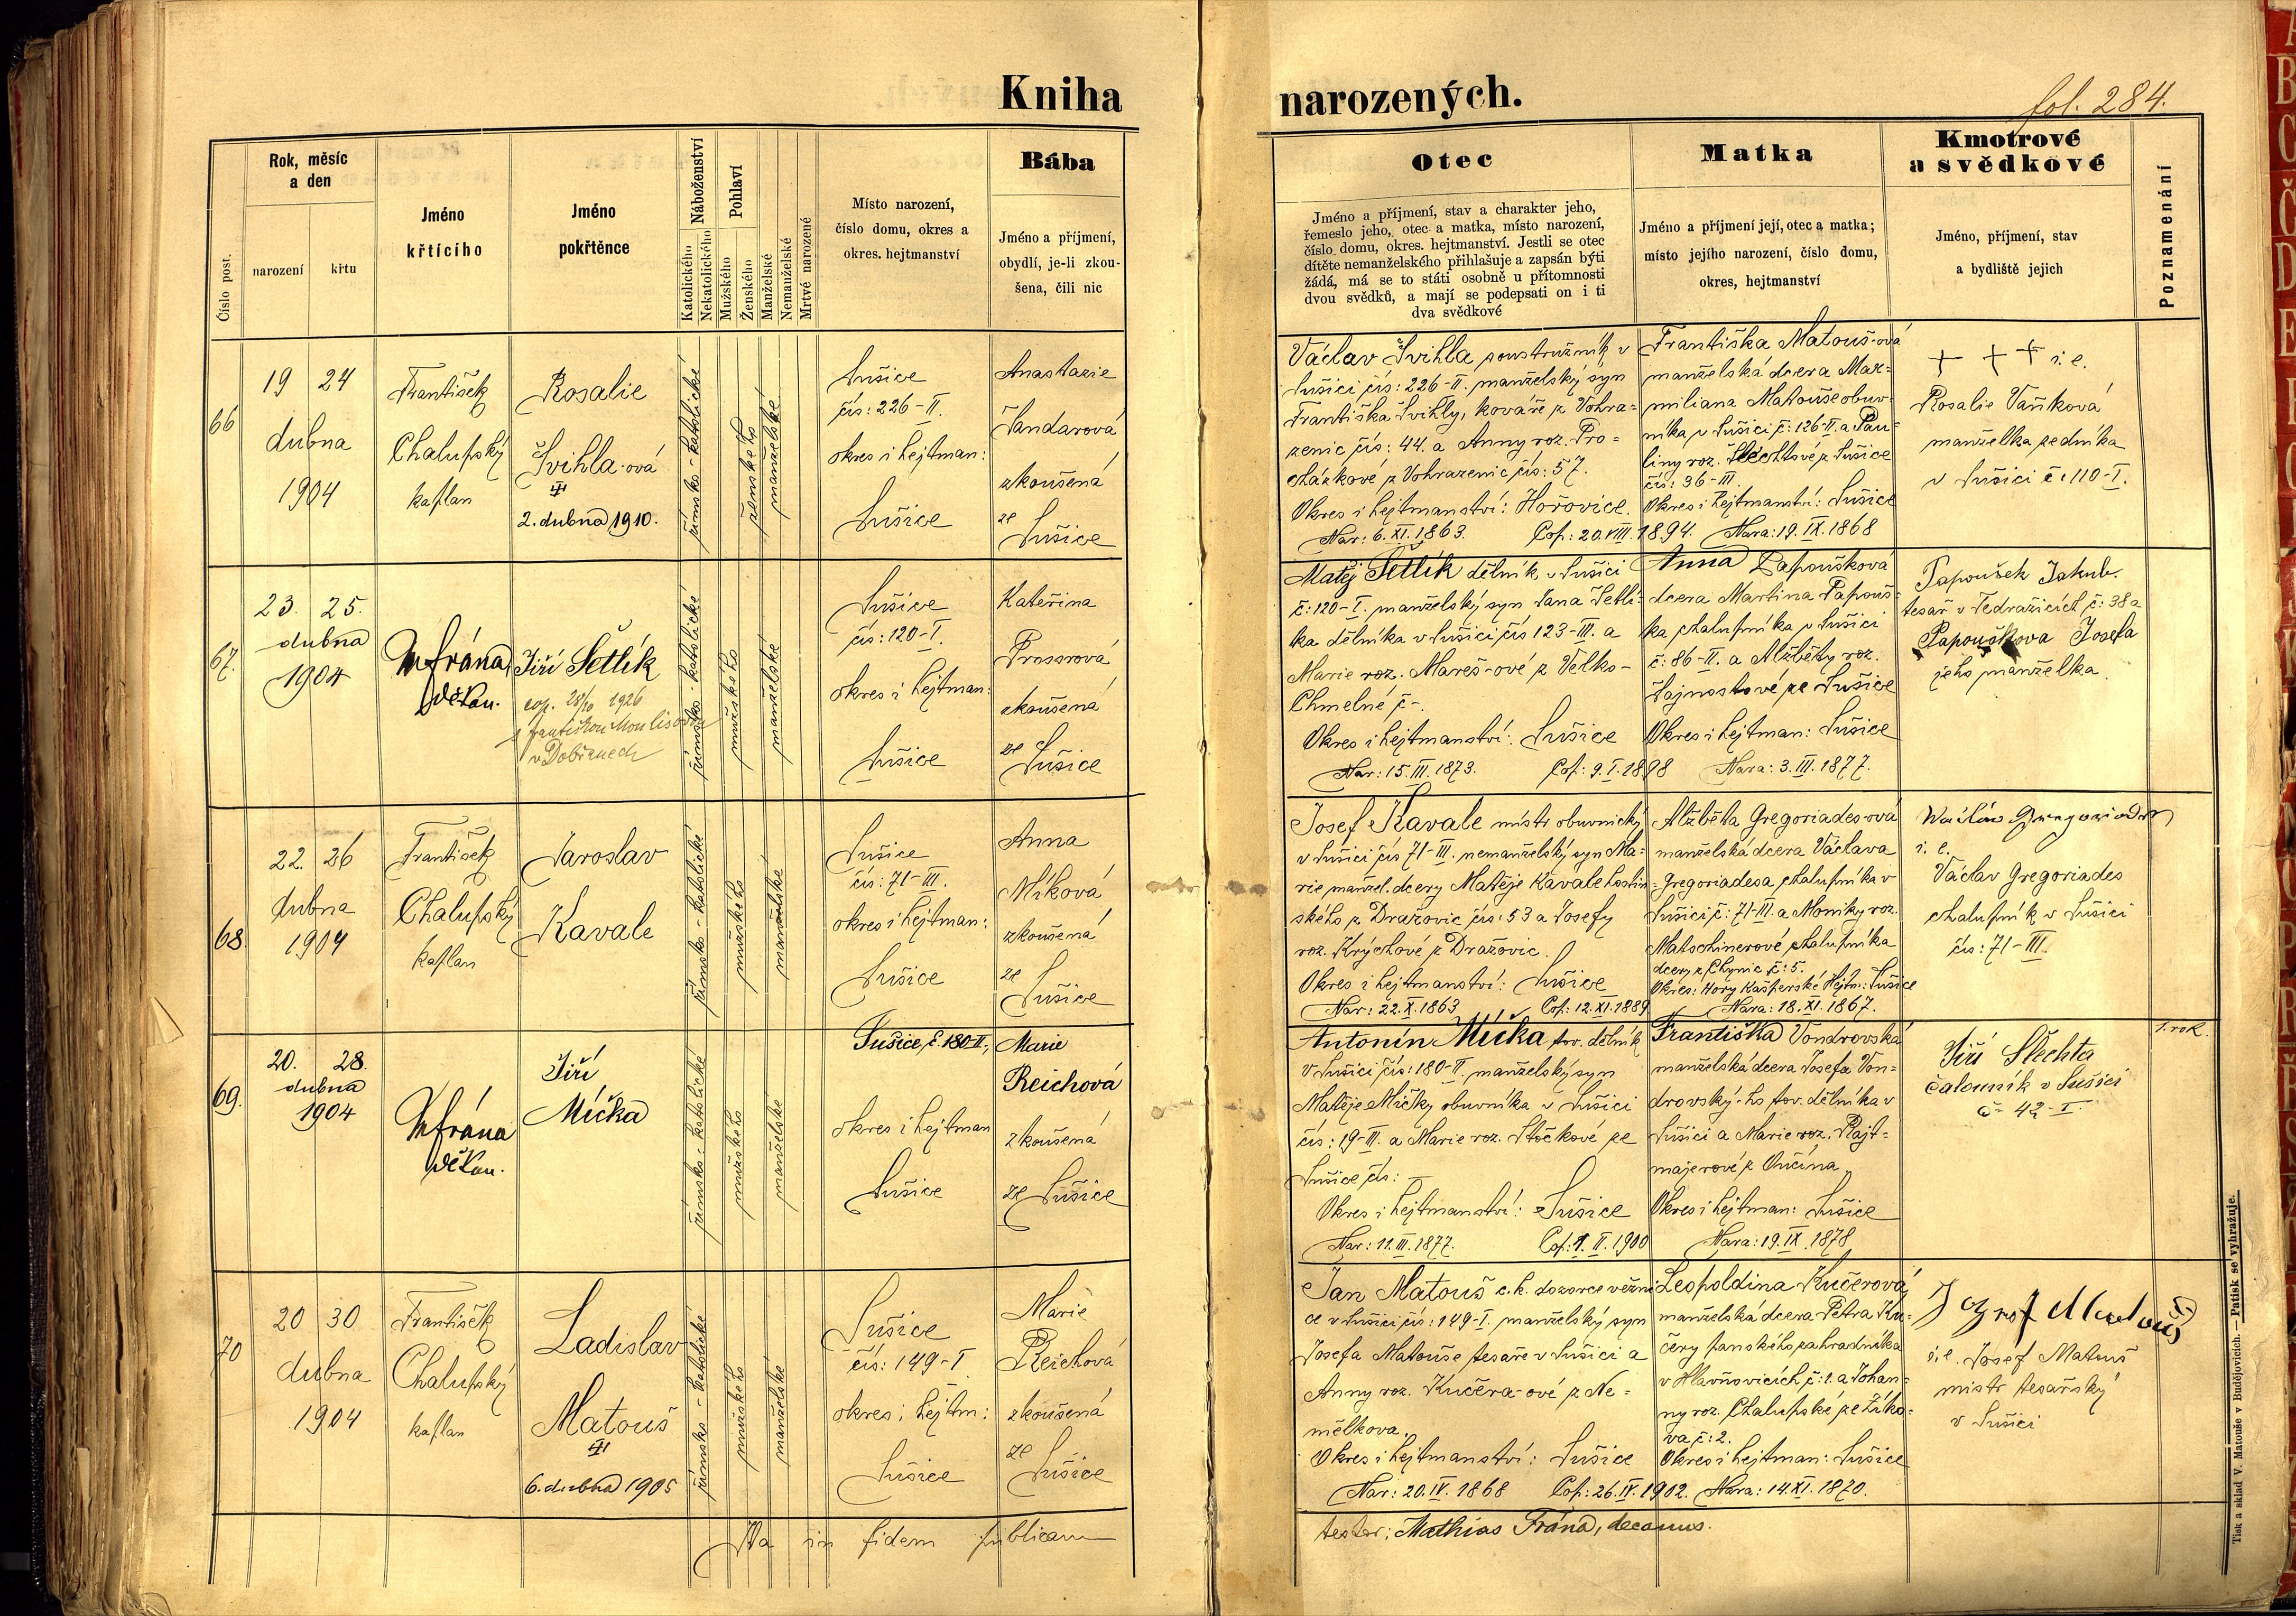 Kniha
narozených.
fol. 284.
Číslo post.
Rok, měsíc
a den
narození
křtu
Jméno
křtícího
Jméno
pokřtěnce
Náboženství
Katolického
Nekatolického
Pohlaví
Mužského
Ženského
Manželské
Nemanželské
Mrtvé narozené
Místo narození,
číslo domu, okres a
okres. hejtmanství
Bába
Jméno a příjmení,
obydlí, je-li zkou-
šena, čili nic
Otec
Jméno a příjmení, stav a charakter jeho,
řemeslo jeho, otec a matka, místo narození,
číslo domu, okres. hejtmanství. Jestli se otec
dítěte nemanželského přihlašuje a zapsán býti
žádá, má se to státi osobně u přítomnosti
dvou svědků, a mají se podepsati on i ti
dva svědkové
Matka
Jméno a příjmení její, otec a matka;
místo jejího narození, číslo domu,
okres, hejtmanství
Kmotrové
a svědkové
Jméno, příjmení, stav
a bydliště jejich
Poznamenání
66
19 24
dubna
1904
František
Chalupský
kaplan
Rosalie
Švihla-ová
2. dubna 1910.
římsko-katolické
ženského
manželské
Sušice
čís: 226-II.
okres i hejtman:
Sušice
Anastazie
Šandarová
zkoušená
ze
Sušice
Václav Švihla poustružník v
Sušici čís: 226-II. manželský syn
Františka Švihly, kováře z Vohra=
zenic čís: 44. a Anny roz. Pro=
cházkové z Vohrazenic čís: 57.
Okres i hejtmanství: Hořovice.
Nar: 6. XI. 1863. Cop: 20. VIII. 1894.
Františka Matouš-ová
manželská dcera Max=
miliana Matouše obuv-
níka v Sušici č: 126-II. a Pau-
liny roz. Šlechtové z Sušice
čís: 36-III.
Okres i hejtmanství: Sušice
Nara: 19. IX. 1868
+ + + i. e.
Rosalie Vaňková
manželka zedníka
v Sušici č: 110-I.
67.
23. 25.
dubna
1904
MFrána,
děkan.
Jiří Šetlík
cop. 28/10 1926
s Františkou Moulisovou
v Dobřanech
římsko-katolické
mužského
manželské
Sušice
čís: 120-I.
okres i hejtman:
Sušice
Kateřina
Prossrová
zkoušená
ze
Sušice
Matěj Šetlík dělník v Sušici
č: 120-I. manželský syn Jana Šetlí-
ka dělníka v Sušici čís 123-III. a
Marie roz. Mareš-ové z Velko-
Chmelné č-.
Okres i hejtmanství: Sušice
Nar: 15. III. 1873. Cop: 9. I. 1898
Anna Papoušková
dcera Martina Papouš-
ka chalupníka v Sušici
č: 86-II. a Alžběty roz.
Šajnostové ze Sušice
Okres i hejtman: Sušice
Nara: 3. III. 1877.
Papoušek Jakub.
tesař v Tedražicích č: 38 a
Papouškova Josefa
jeho manželka.
68
22. 26
dubna
1904
František
Chalupský
kaplan
Jaroslav
Kavale
římsko-katolické
mužského
manželské
Sušice
čís: 71-III.
okres i hejtman:
Sušice
Anna
Míková
zkoušená
ze
Sušice
Josef Kavale mistr obuvnický
v Sušici čís 71-III. nemanželský syn Ma-
rie manžel. dcery Matěje Kavale hostin-
ského z Dražovic čís: 53 a Josefy
roz. Krýchové z Dražovic.
Okres i hejtmanství: Sušice
Nar: 22. X. 1863 Cop: 12. XI. 1889
Alžběta Gregoriades-ová
manželská dcera Václava
Gregoriadesa chalupníka v
Sušici č: 71-III. a Moniky roz.
Matschinerové chalupníka
dcery z Chynic č: 5.
Okres: Hory Kašperské Hejtm: Sušice
Nara: 18. XI. 1867.
i. e.
Václav Gregoriades
chalupník v Sušici
čís: 71-III.
69.
20. 28.
dubna
1904
MFrána
děkan.
Jiří
Míčka
římsko-katolické
mužského
manželské
Sušice, č. 180-II.,
okres i hejtman
Sušice
Marie
Reichová
zkoušená
ze Sušice
Antonín Míčka tov. dělník
v Sušici čís: 180-II. manželský syn
Matěje Míčky obuvníka v Sušici
čís: 19-III. a Marie roz. Stočkové ze
Sušice čís: -
Okres i hejtmanství: Sušice
Nar: 11. III. 1877. Cop: 1. II. 1900
Františka Vondrovská
manželská dcera Josefa Von=
drovský-ho tov. dělníka v
Sušici a Marie roz. Rajt=
majerové z Ončína
Okres i hejtman: Sušice
Nara: 19. IX. 1878
Jiří Šlechta
čalouník v Sušici
č- 42-I.
1. rok.
70
20 30
dubna
1904
František
Chalupský
kaplan
Ladislav
Matouš
6. dubna 1905
římsko-katolické
mužského
manželské
Sušice
čís: 149-I
okres i hejtm:
Sušice
Marie
Reichová
zkoušená
ze
Sušice
Jan Matouš c. k. dozorce vězni-
ce v Sušici čís: 149-I. manželský syn
Josefa Matouše tesaře v Sušici a
Anny roz. Kučera-ové z Ne=
mělkova.
Okres i hejtmanství: Sušice
Nar: 20. IV. 1868 Cop: 26. IV. 1902.
Leopoldina Kučerová
manželská dcera Petra Ku-
čery panského zahradníka
v Hlavňovicích č: 1. a Johan=
ny roz. Chalupské ze Žiko-
va č: 2.
Okres i hejtman: Sušice
Nara: 14. XI. 1870.
Jozef Matouš
i. e. Josef Matouš
mistr tesařský
v Sušici
Ita in fidem publicam
testor: Mathias Frána, decanus.
Tisk a sklad V. Matouše v Budějovicích. — Patisk se vyhražuje.